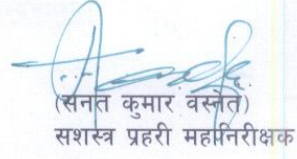 (सनत कुमार वस्नेत)
सशस्त्र प्रहरी महानिरीक्षक